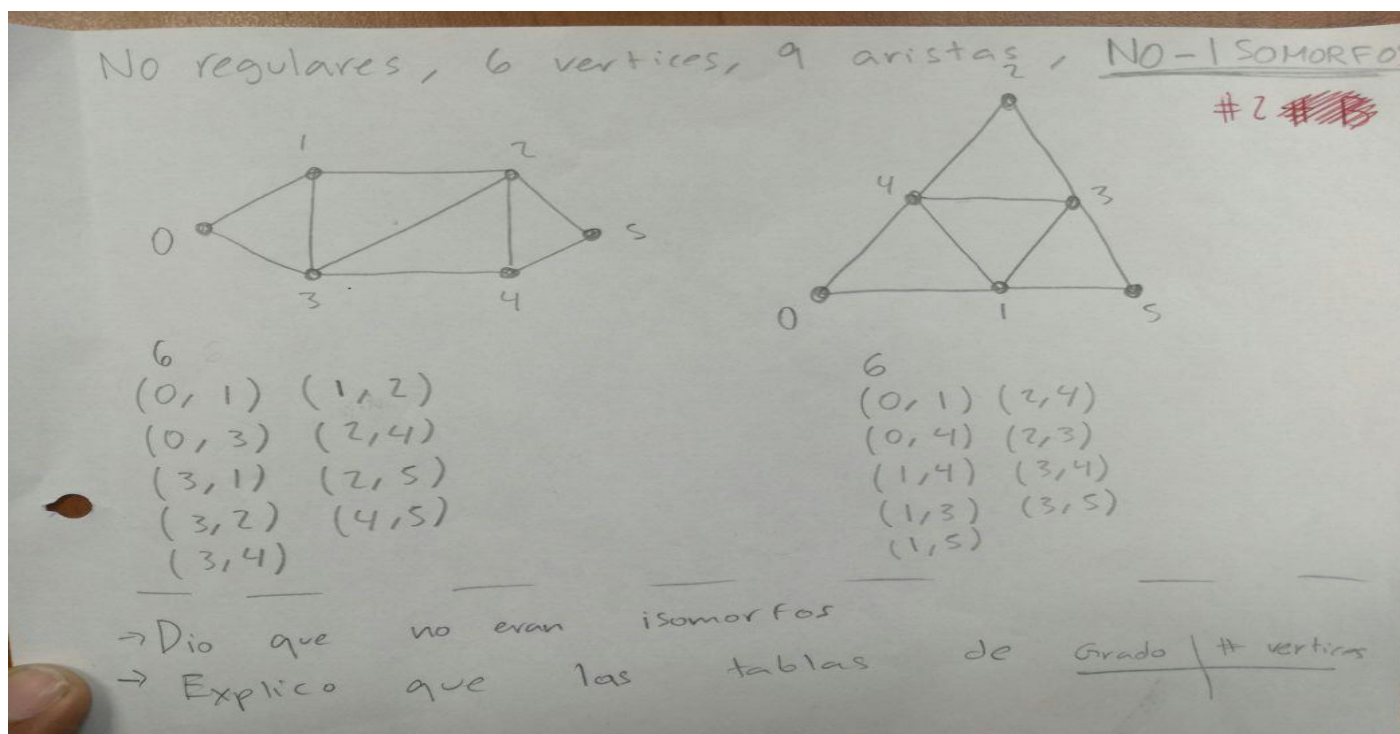 No regulares, 6 vertices, 9 aristas, NO-ISOMORFO
#2
1 2
0 5
3 4
2
4 3
0 1 5
6
(0, 1) (1, 2)
(0, 3) (2, 4)
(3, 1) (2, 5)
(3, 2) (4, 5)
(3, 4)
6
(0, 1) (2, 4)
(0, 4) (2, 3)
(1, 4) (3, 4)
(1, 3) (3, 5)
(1, 5)
→ Dio que no eran isomorfos
→ Explico que las tablas de Grado | # vertices